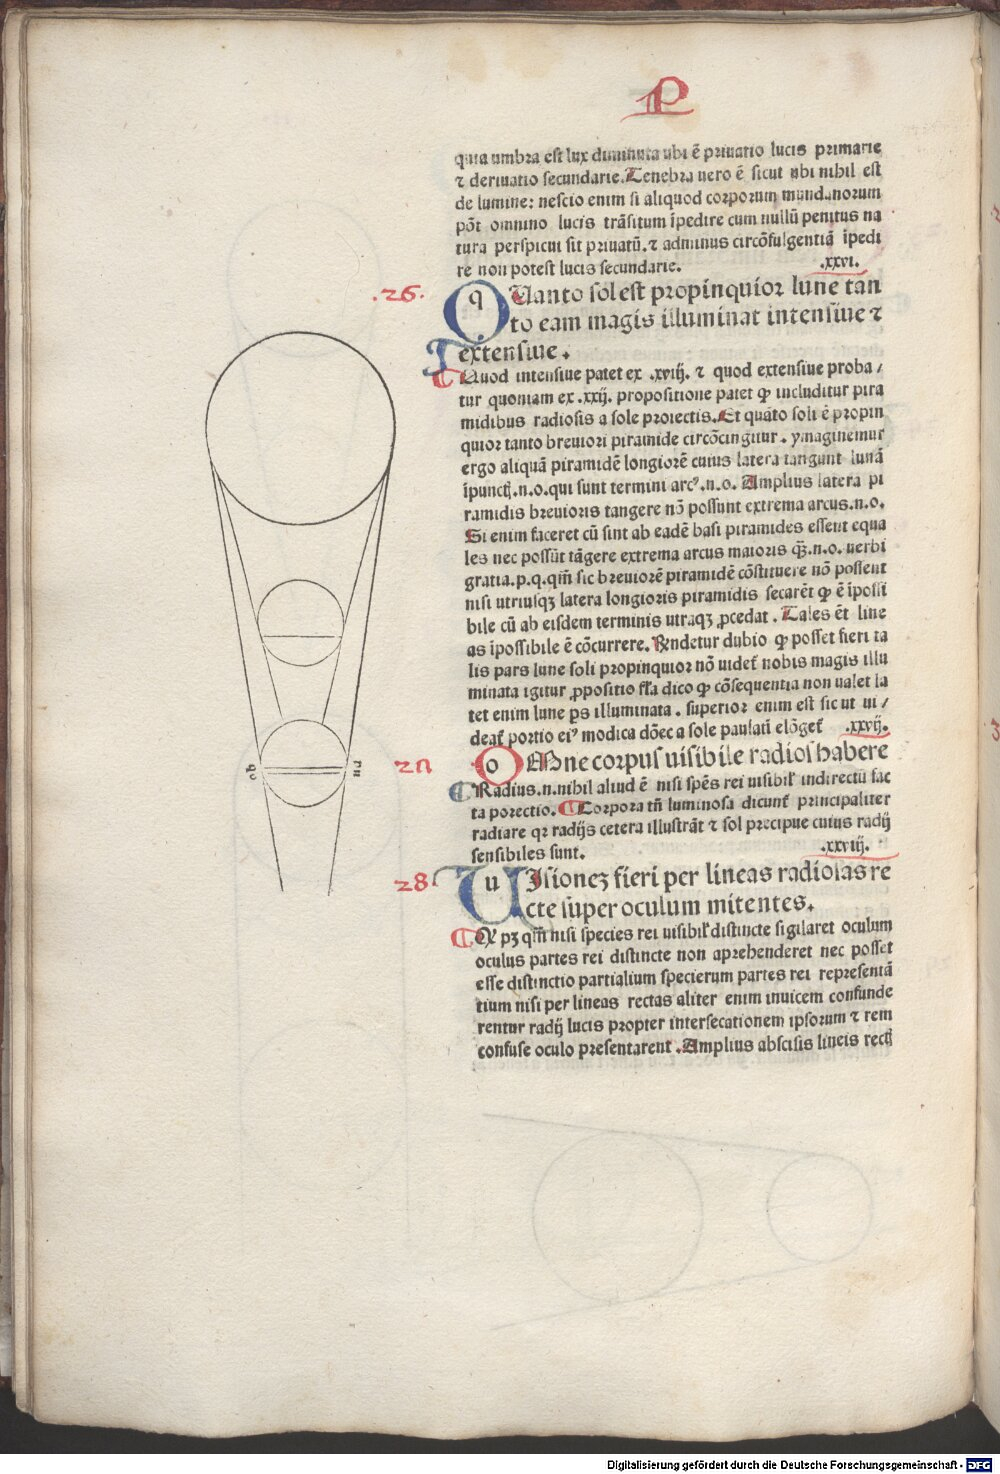 P
quia umbra est lux diminuta ubi ē priuatio lucis primarie
⁊ deriuatio secundarie. Tenebra uero ē sicut ubi nihil est
de lumine: nescio enim si aliquod corporum mundanorum
pōt omnino lucis trāsitum īpedire cum nullū penitus na
tura perspicui sit priuatū. ⁊ adminus circōfulgentiā īpedi
re non potest lucis secundarie. .xxvi.
.26.
q Uanto sol est propinquior lune tan
to eam magis illuminat intensiue ⁊
extensiue.
Quod intensiue patet ex .xviij. ⁊ quod extensiue proba/
tur quoniam ex .xxij. propositione patet ꝙ includitur pira
midibus radiosis a sole proiectis. Et quāto soli ē propin
quior tanto breuiori piramide circōcingitur. ymaginemur
ergo aliquā piramidē longiorē cuius latera tangunt lunā
ī punctꝭ.n.o. qui sunt termini arcꝰ.n.o. Amplius latera pi
ramidis breuioris tangere nō possunt extrema arcus.n.o.
Si enim faceret cū sint ab eadē basi piramides essent equa
les nec possūt tāgere extrema arcus maioris q̄̄.n.o. uerbi
gratia.p.q. qm̄ sic breuiorē piramidē cōstituere nō possent
nisi utriusqꝫ latera longioris piramidis secarēt ꝙ ē īpossi
bile cū ab eisdem terminis utraqꝫ ꝓcedat. Tales ēt line
as īpossibile ē cōcurrere. Rn̄detur dubio ꝙ posset fieri ta
lis pars lune soli propinquior nō uidet᷑ nobis magis illu
minata igitur ꝓpositio fl̄a dico ꝙ cōsequentia non ualet la
tet enim lune ps̄ illuminata. superior enim est sicut ui/
deat᷑ portio eiꝰ modica dōec a sole paulati elōget᷑ .xxvij.
o Mne corpus uisibile radios habere
Radius.n.nihil aliud ē nisi spēs rei uisibil᷑ indirectū fac
ta porectio. Corpora tn̄ luminosa dicunt᷑ principaliter
radiare qꝛ radijs cetera illustrāt ⁊ sol precipue cuius radij
sensibiles sunt. .xxviij.
28.
u Isionez fieri per lineas radiosas re
cte super oculum mitentes.
Qꝫ pꝫ qm̄ nisi species rei uisibil᷑ distincte sigilaret oculum
oculus partes rei distincte non aprehenderet nec posset
esse distinctio partialium specierum partes rei representā
tium nisi per lineas rectas aliter enim inuicem confunde
rentur radij lucis propter intersecationem ipsorum ⁊ rem
confuse oculo presentarent. Amplius abscisis lineis rectꝭ
Digitalisierung gefördert durch die Deutsche Forschungsgemeinschaft - DFG